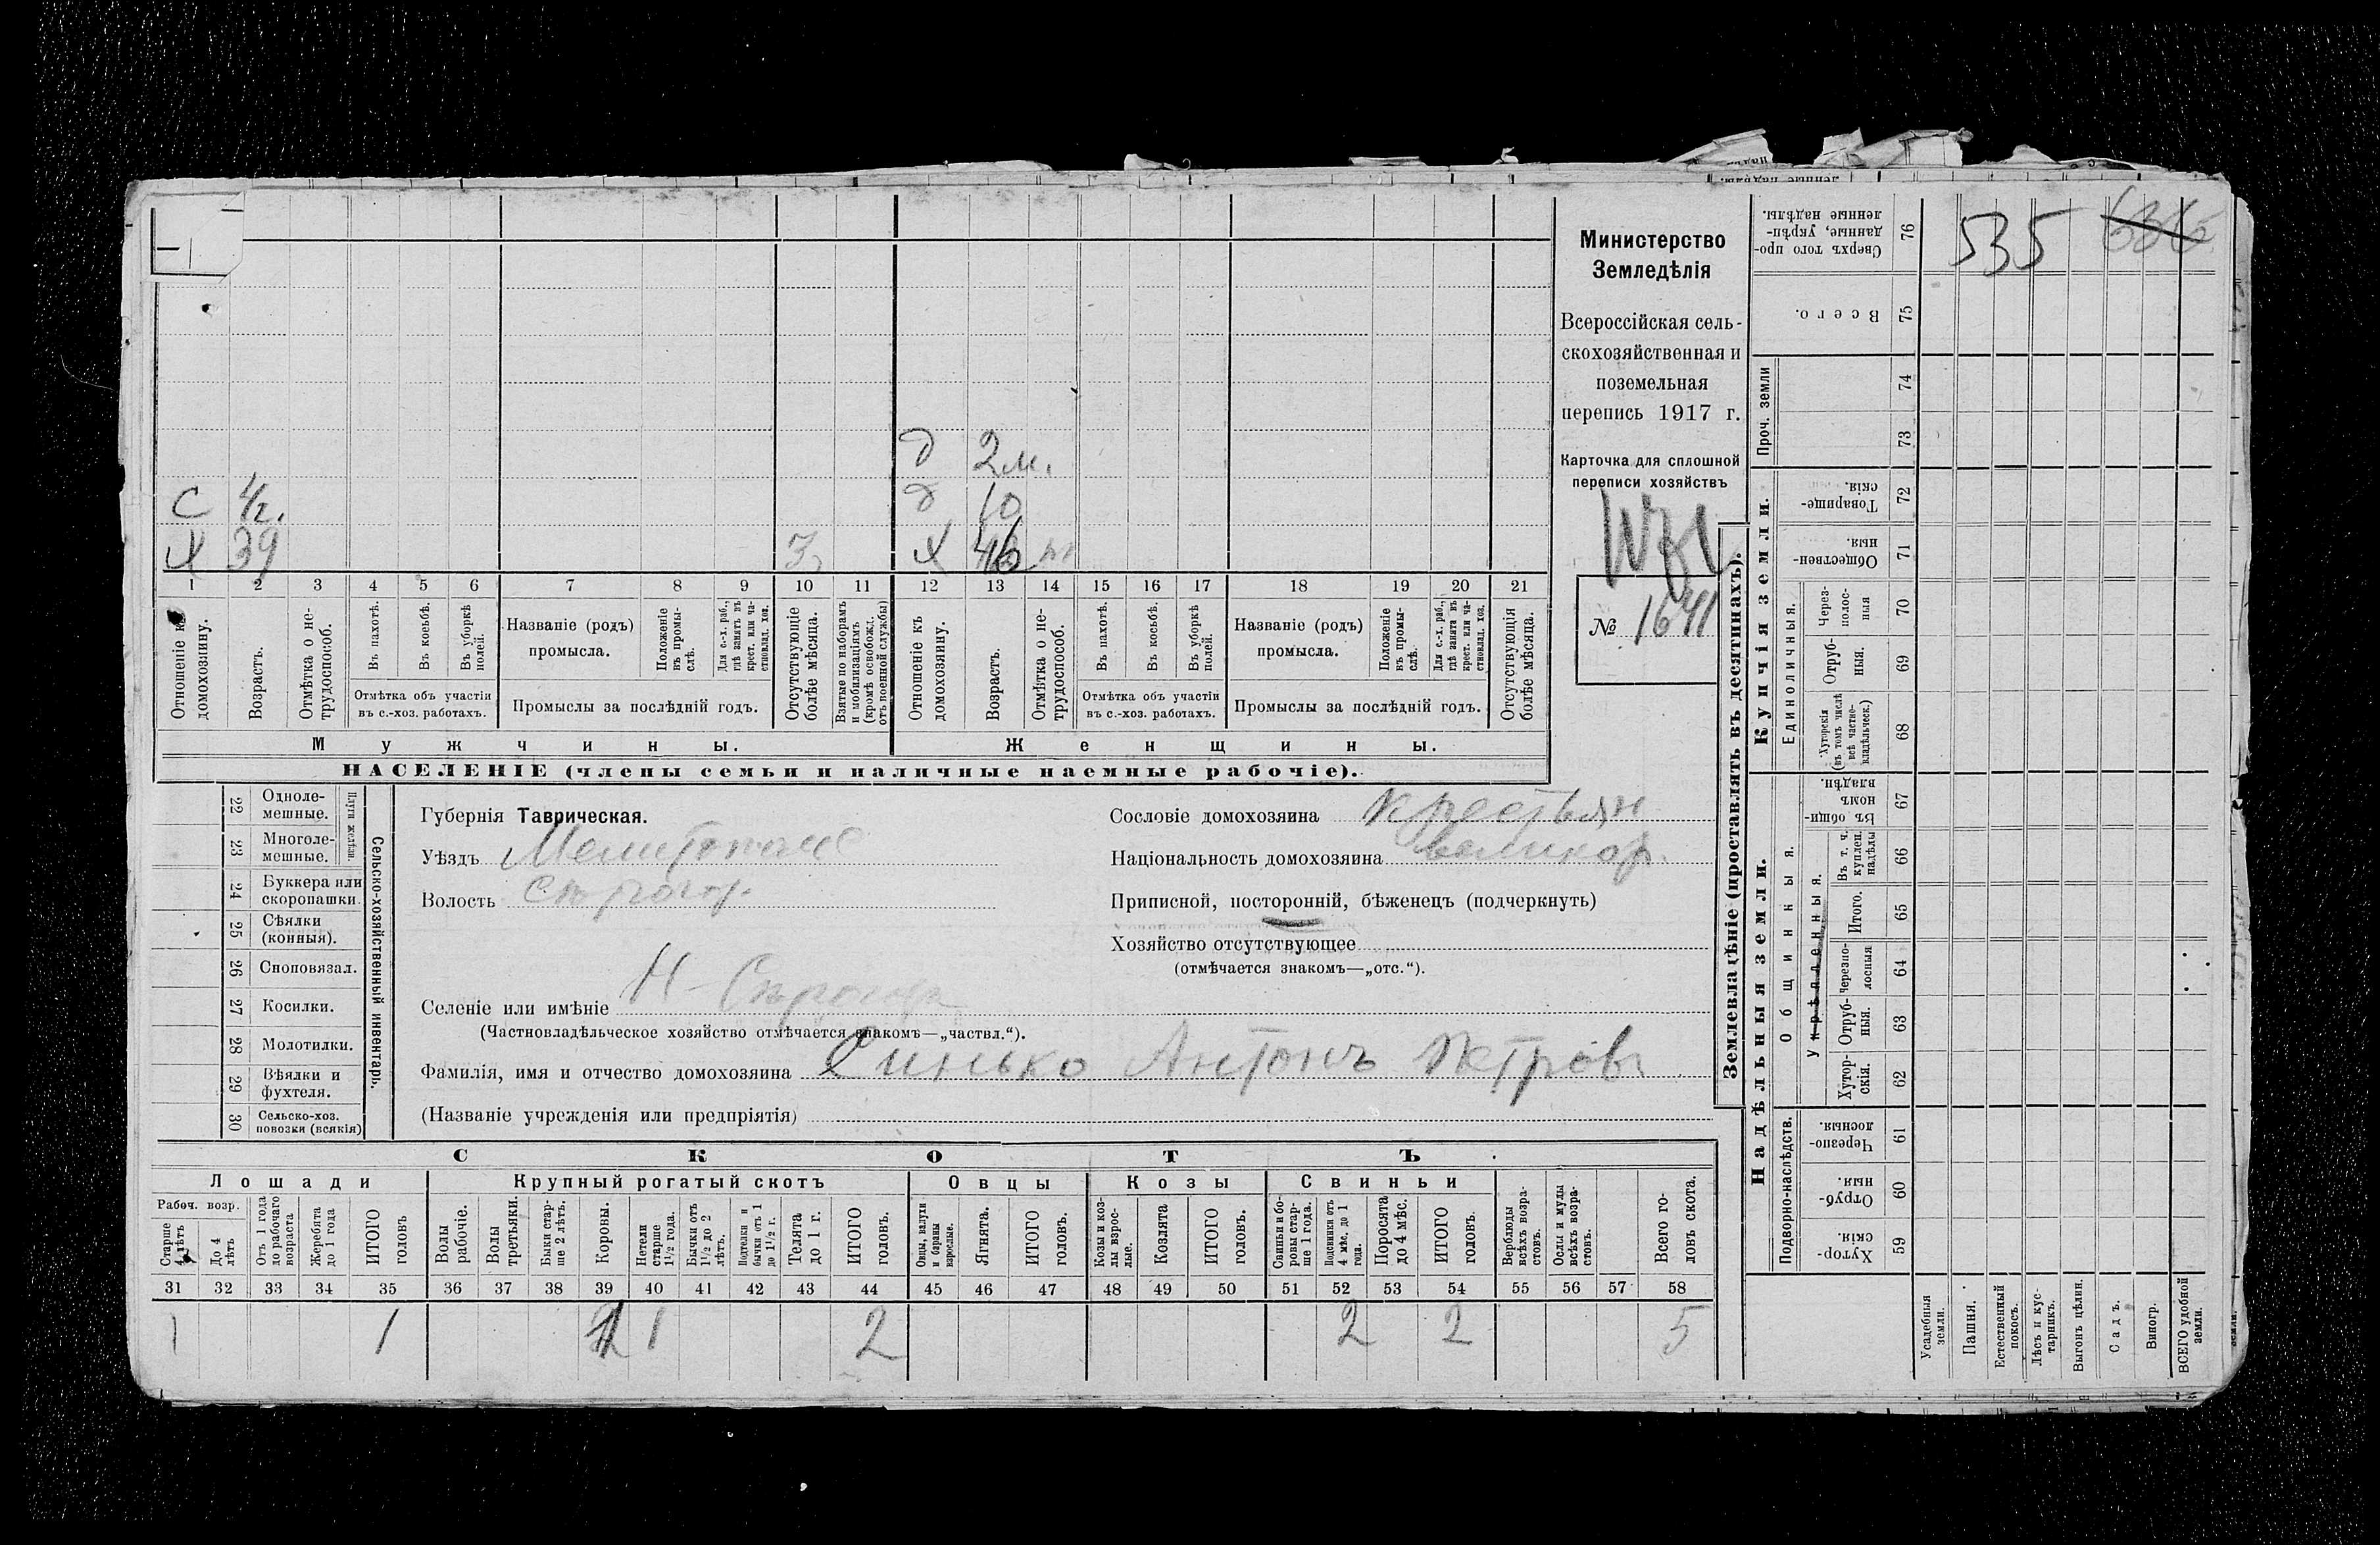 Министерство
Земледѣлія
Всероссійская сель-
скохозяйственная и
поземельная
перепись 1917 г.
Карточка для сплошной
переписи хозяйствъ
№ 1641
535
д 2 м.
С 4 г. д 10
Х 39 Х 46
1 2 3 4 5 6 7 8 9 10 11 12 13 14 15 16 17 18 19 20 21
Отношеніе къ домохозяину.
Возрастъ.
Отмѣтка о не-трудоспособ.
Въ пахотѣ.
Въ косьбѣ.
Въ уборкѣ полей.
Отмѣтка объ участіи
въ с.-хоз. работахъ.
Названіе (родъ)
промысла.
Положеніе въ промы-слѣ.
Для с.-х. раб., гдѣ занятъ въ крест. или ча-стновлад. хоз.
Промыслы за послѣдній годъ.
Отсутствующіе болѣе мѣсяца.
Взятые по наборамъ и мобилизаціямъ (кромѣ освобожд. отъ военной службы)
Отношеніе къ домохозяину.
Возрастъ.
Отмѣтка о не-трудоспособ.
Въ пахотѣ.
Въ косьбѣ.
Въ уборкѣ полей.
Отмѣтка объ участіи
въ с.-хоз. работахъ.
Названіе (родъ)
промысла.
Положеніе въ промы-слѣ.
Для с.-х. раб., гдѣ занята въ крест. или ча-стновлад. хоз.
Промыслы за послѣдній годъ.
Отсутствующія болѣе мѣсяца.
Мужчины. Женщины.
НАСЕЛЕНІЕ (члены семьи и наличные наемные рабочіе).
Сельско-хозяйственный инвентарь.
Плуги желѣзн.
22 Одноле-мешные.
23 Многоле-мешные.
24 Буккера или скоропашки.
25 Сѣялки (конныя).
26 Сноповязал.
27 Косилки.
28 Молотилки.
29 Вѣялки и фухтеля.
30 Сельско-хоз. повозки (всякія)
Губернія Таврическая.
Уѣздъ
Волость
Селеніе или имѣніе
(Частновладѣльческое хозяйство отмѣчается знакомъ—„частвл.“).
Фамилія, имя и отчество домохозяина Синько Антонъ Петров.
(Названіе учрежденія или предпріятія)
Сословіе домохозяина Крестьян
Національность домохозяина великор.
Приписной, посторонній, бѣженецъ (подчеркнуть)
Хозяйство отсутствующее
(отмѣчается знакомъ—„отс.“).
СКОТЪ.
Лошади Крупный рогатый скотъ Овцы Козы Свиньи
Рабоч. возр.
Старше 4 лѣтъ
До 4 лѣтъ
Отъ 1 года до рабочаго возраста
Жеребята до 1 года
ИТОГО головъ
Волы рабочіе.
Волы третьяки.
Быки стар-ше 2 лѣтъ.
Коровы.
Нетели старше 1½ года.
Бычки отъ 1½ до 2 лѣтъ.
Подтелки и бычки отъ 1 до 1½ г.
Телята до 1 г.
ИТОГО головъ.
Овцы, валухи и бараны взрослые.
Ягнята.
ИТОГО головъ.
Козы и коз-лы взрос-лые.
Козлята
ИТОГО головъ.
Свиньи и бо-ровы стар-ше 1 года.
Подсвинки отъ 4 мѣс. до 1 года.
Поросята до 4 мѣс.
ИТОГО головъ.
Верблюды всѣхъ возра-стовъ.
Ослы и мулы всѣхъ возра-стовъ.
Всего го-ловъ скота.
31 32 33 34 35 36 37 38 39 40 41 42 43 44 45 46 47 48 49 50 51 52 53 54 55 56 57 58
1 1 1 2 2 2 5
Землевладѣніе (проставлять въ десятинахъ).
Надѣльныя земли. Купчія земли.
Подворно-наслѣдств.
Общинныя.
Укрѣпленныя.
Единоличныя.
Проч. земли
59 Хутор-скія.
60 Отруб-ныя.
61 Черезпо-лосныя.
62 Хутор-скія.
63 Отруб-ныя.
64 Черезпо-лосныя
65 Итого.
66 Въ т. ч. куплен. надѣлы
67 Въ общи-номъ владѣн.
68 Хуторскія (въ томъ числѣ всѣ частно-владѣльческ.)
69 Отруб-ныя.
70 Через-полос-ныя
71 Обществен-ныя.
72 Товарище-скія.
73
74
75 Всего.
76 Сверхъ того про-данные, укрѣп-ленные надѣлы.
Усадебныя земли.
Пашня.
Естественный покосъ.
Лѣсъ и кус-тарникъ.
Выгонъ цѣлин.
Садъ.
Виногр.
ВСЕГО удобной земли.